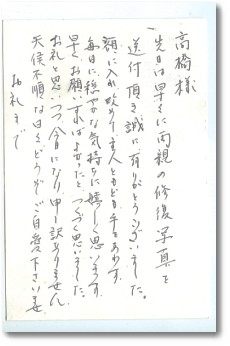 高橋様
先日は早々に両親の修復写真を
送付頂き誠に有りがとうございました。
額に入れ改めて主人ともども手をあわす
毎日に穏やかな気持ちに嬉しく思います。
早くお願いすればよかったとつくづく思いました。
お礼と思いつつ今日になり申し訳ありません。
天候不順な日々どうぞご自愛下さいませ
お礼まで